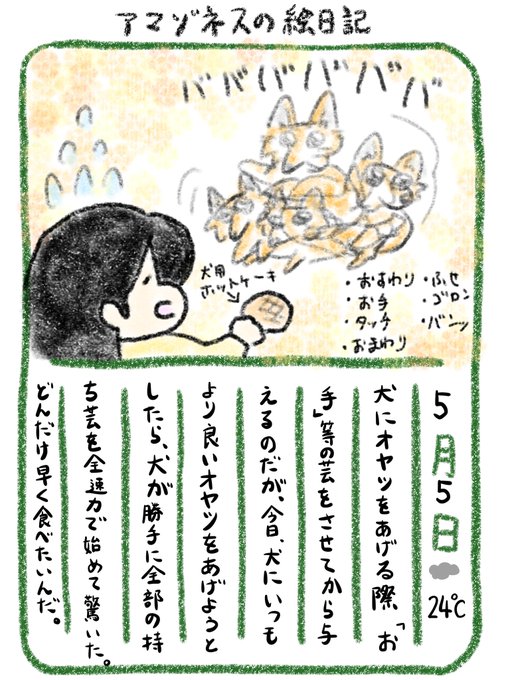 アマゾネスの絵日記
バババババババ
犬用
ホットケーキ
・おすわり
・お手
・タッチ
・おまわり
・ふせ
・ゴロン
・バンッ
5月5日
24℃
犬にオヤツをあげる際、「お
手」等の芸をさせてから与
えるのだが、今日、犬にいつも
より良いオヤツをあげようと
したら、犬が勝手に全部の持
ち芸を全速力で始めて驚いた。
どんだけ早く食べたいんだ。